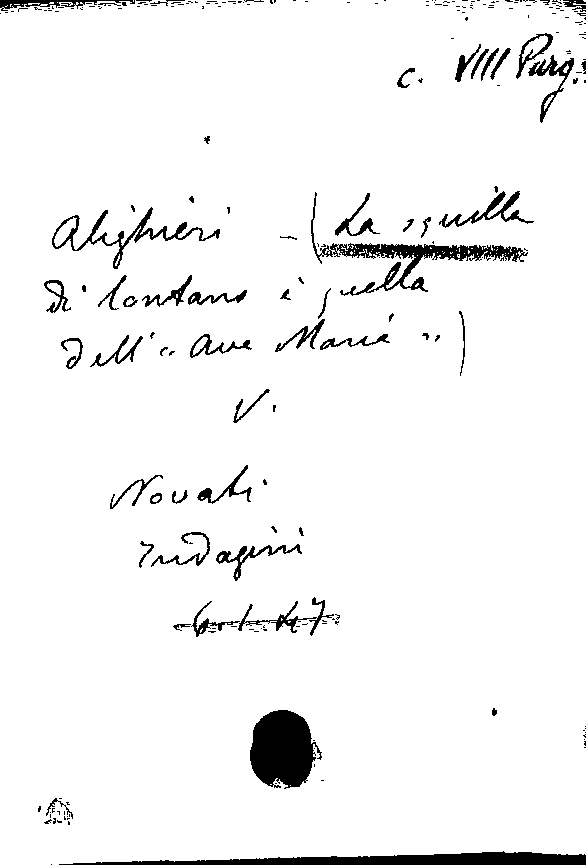 c. VIII Purg.
Alighieri - (La squilla
di lontano è quella
dell' "Ave Maria")
V.
Novati
Indagini